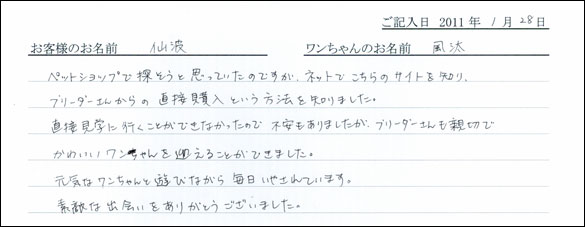 ご記入日 2011年 1月 28日
お客様のお名前 仙波 ワンちゃんのお名前 風汰
ペットショップで探そうと思っていたのですが、ネットでこちらのサイトを知り、
ブリーダーさんからの直接購入という方法を知りました。
直接見学に行くことができなかったので不安もありましたが、ブリーダーさんも親切で
かわいいワンちゃんを迎えることができました。
元気なワンちゃんと遊びながら毎日いやされています。
素敵な出会いをありがとうございました。